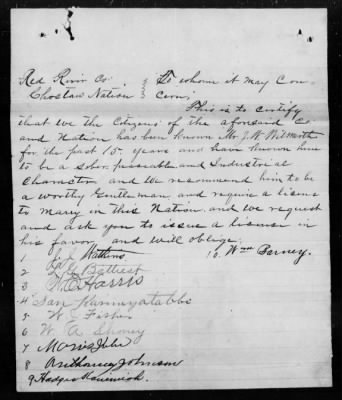 Red River Co.
Choctaw Nation
To whom it may Con-
cern;
This is to certify
that we the Citizens of the aforesaid Co
and Nation, has been known Mr J. W. Wilmoth
for the past 15 years and have known him
to be a sober, peasable and Industrial
Character, and we recommend him to be
a worthy Gentleman and require a lisens
to marry in this Nation. and we request
and ask you to issue a lisense in
his favor and will oblige.
1 Watkins
10. Wm Barney.
2 Battiest
3 Harris
4 San Kanuyatabbs
5 W. Fisher
6 W A Shoney
7
8 Anthaney Johnson
9